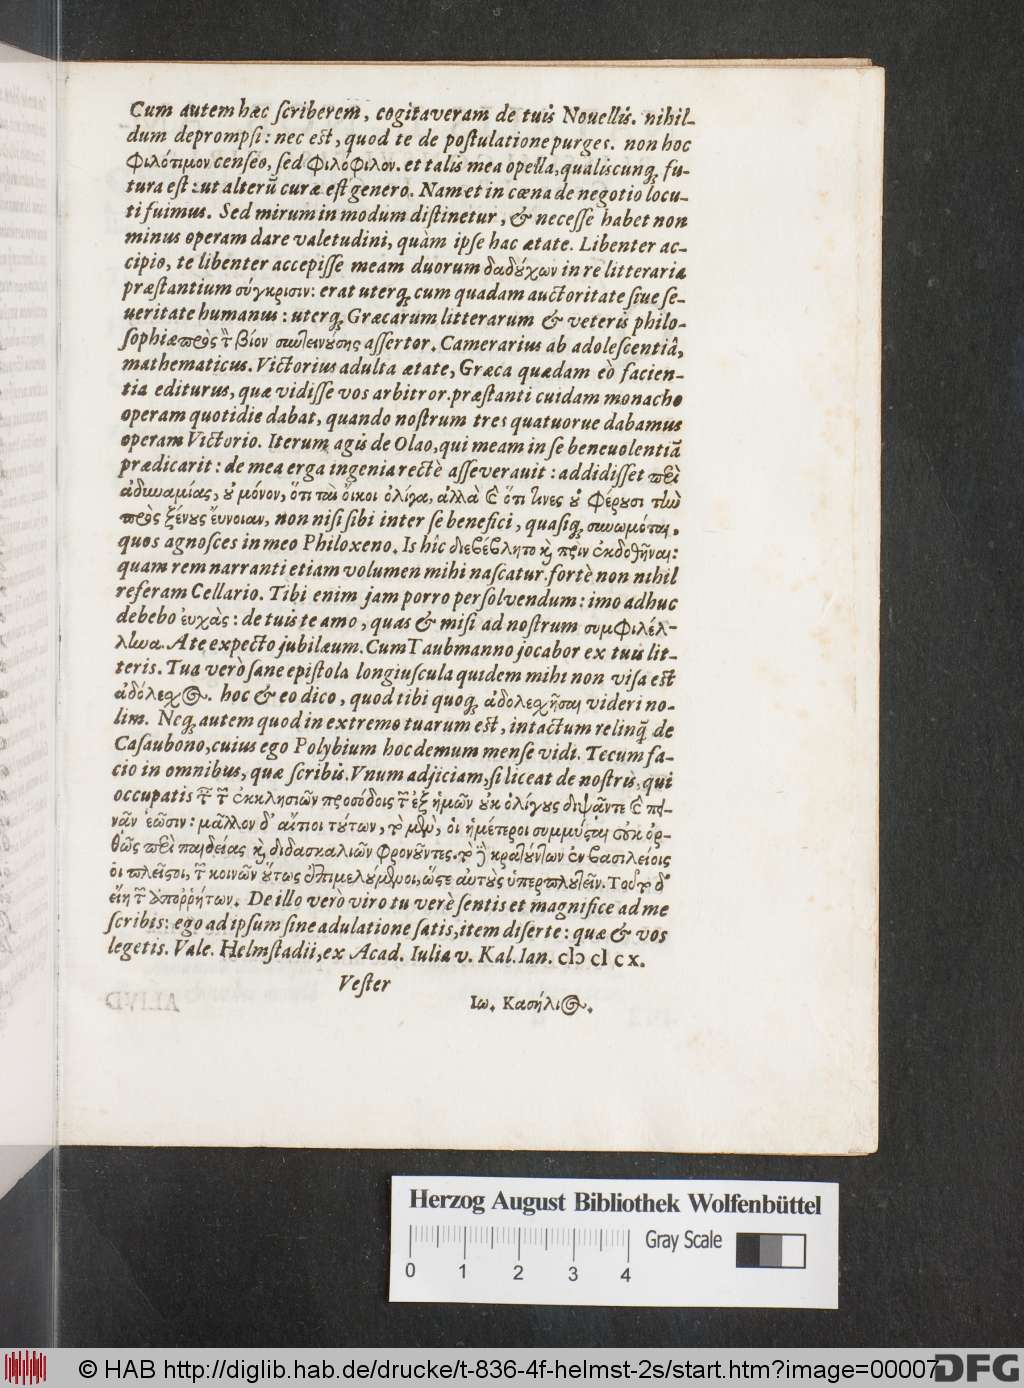 Cum autem hæc ſcriberem, cogitaveram de tuis Nouellis. nihil-
dum deprompſi: nec eſt, quod te de poſtulatione purges. non hoc
φιλότιμον cenſeo, ſed φιλόφιλον. et talis mea opella, qualiscunq; fu-
tura eſt: ut alterũ curæ eſt genero. Nam et in cœna de negotio locu-
ti fuimus. Sed mirum in modum diſtinetur, & neceſſe habet non
minus operam dare valetudini, quàm ipſe hac ætate. Libenter ac-
cipio, te libenter accepiſſe meam duorum δαδύχων in re litteraria
præſtantium σύγκρισιν: erat uterq; cum quadam auctoritate ſiue ſe-
ueritate humanus: uterq; Græcarum litterarum & veteris philo-
ſophiæ πρὸς τ̃ βίον aſſertor. Camerarius ab adoleſcentiâ,
mathematicus. Victorius adulta ætate, Græca quædam eò facien-
tia editurus, quæ vidiſſe vos arbitror. præſtanti cuidam monacho
operam quotidie dabat, quando noſtrum tres quatuorue dabamus
operam Victorio. Iterum agis de Olao, qui meam in ſe beneuolentiã
prædicarit: de mea erga ingenia rectè aſſeverauit: addidiſſet πεὶ
ἀδυναμίας, ȣ̓ μόνον, ὅτι ταὶ οἴκοι ὀλίγα, ἀλλὰ ὅτι τινες ȣ̓ φέρȣσι τὴν
πρὸς ξένȣς ἔυνοιαν, non niſi ſibi inter ſe benefici, quaſiq; συνωμόται,
quos agnoſces in meo Philoxeno. Is hîc διεβέβλητο κỳ πρὶν ἐκδοθῆναι:
quam rem narranti etiam volumen mihi naſcatur. fortè non nihil
referam Cellario. Tibi enim jam porro perſolvendum: imo adhuc
debebo ἐυχὰς: de tuis te amo, quas & miſi ad noſtrum συμφιλέλ-
ληνα. A te expecto jubilæum. Cum Taubmanno jocabor ex tuis lit-
teris. Tua verò ſane epiſtola longiuſcula quidem mihi non viſa eſt
ἀδόλεχος. hoc & eo dico, quod tibi quoq; ἀδολεχῆσαι videri no-
lim. Neq; autem quod in extremo tuarum eſt, intactum relinq; de
Caſaubono, cuius ego Polybium hoc demum menſe vidi. Tecum fa-
cio in omnibus, quæ ſcribis. Vnum adjiciam, ſi liceat de noſtris, qui
occupatis τ̃ τ̃ ἐκκλησιῶν προσόδοις τ̃ ἐξ ἡμῶν ȣκ ὀλίγȣς διψᾶντε πει-
νᾶν ἐῶσιν: μᾶλλον δ' αἴτιοι τȣ́των, οἱ ἡμέτεροι συμμύσται ȣκ ὀρ-
θῶς πεὶ παιδείας κỳ διδασκαλιῶν φρονȣ͂ντες. κρατȣ́ντων ἐν βασιλείοις
οἱ πλεῖστοι, τ̃ κοινῶν ȣ̔́τως ἐπιμελȣ́μενοι, ὥστε αὐτȣ̀ς ὑπερπλȣτεῖν. δ'
εἴη τ̃ ἀπορρήτων. De illo verò viro tu verè ſentis et magnifice ad me
ſcribis: ego ad ipſum ſine adulatione ſatis, item diſerte: quæ & vos
legetis. Vale. Helmſtadii, ex Acad. Iulia v. Kal. Ian. cIↄ cI cx.
Veſter
Ιω. Κασήλιος.
Herzog August Bibliothek Wolfenbüttel
0 1 2 3 4
Gray Scale
© HAB http://diglib.hab.de/drucke/t-836-4f-helmst-2s/start.htm?image=00007
DFG